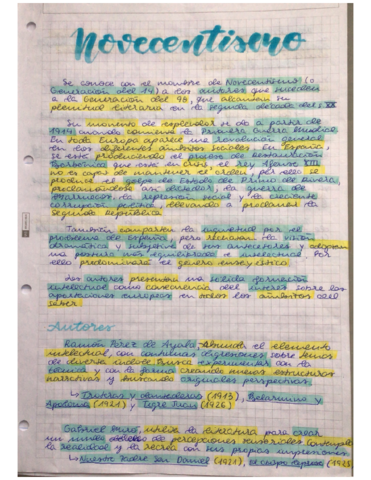 Novecentismo
Se conoce con el nombre de Novecentismo (o
Generación del 14) a los autores que suceden
a la Generación del 98, que alcanzan su
plenitud literaria en la segunda década del s. XX
Su momento de esplendor se da a partir de
1914, cuando comienza la Primera Guerra Mundial.
En toda Europa aparece una renovación general
en los diversos ámbitos sociales. En España,
se está produciendo el proceso de Restauración
Borbónica que está en crisis, el rey Alfonso XIII
no es capaz de mantener el orden, por ello se
produce el golpe de Estado de Primo de Rivera,
proclamándose así dictador, la guerra de
Marruecos, la represión social y la creciente
corrupción llevando a proclamar la
Segunda República
También comparten la inquietud por el
problema de España, pero rechazan la visión
dramática y subjetiva de sus antecesores y adoptan
una postura más equilibrada e intelectual. Por
ello predominará el género ensayístico
Los autores presentan una sólida formación
intelectual como consecuencia del interés sobre las
aportaciones europeas en todos los ámbitos del
saber.
Autores
Ramón Pérez de Ayala: el elemento
intelectual, con continuas digresiones sobre temas
de diversa índole. Busca experimentar con la
técnica y con la forma creando nuevas estructuras
narrativas y buscando originales perspectivas.
↳ Troteras y danzaderas (1913), Belarmino y
Apolonio (1921) y Tigre Juan (1926)
Gabriel Miró, la literatura para crear
un mundo de percepciones sensoriales (contempla
la realidad y la recrea con sus propias impresiones.
↳ Nuestro Padre San Daniel (1921), El obispo leproso (1925